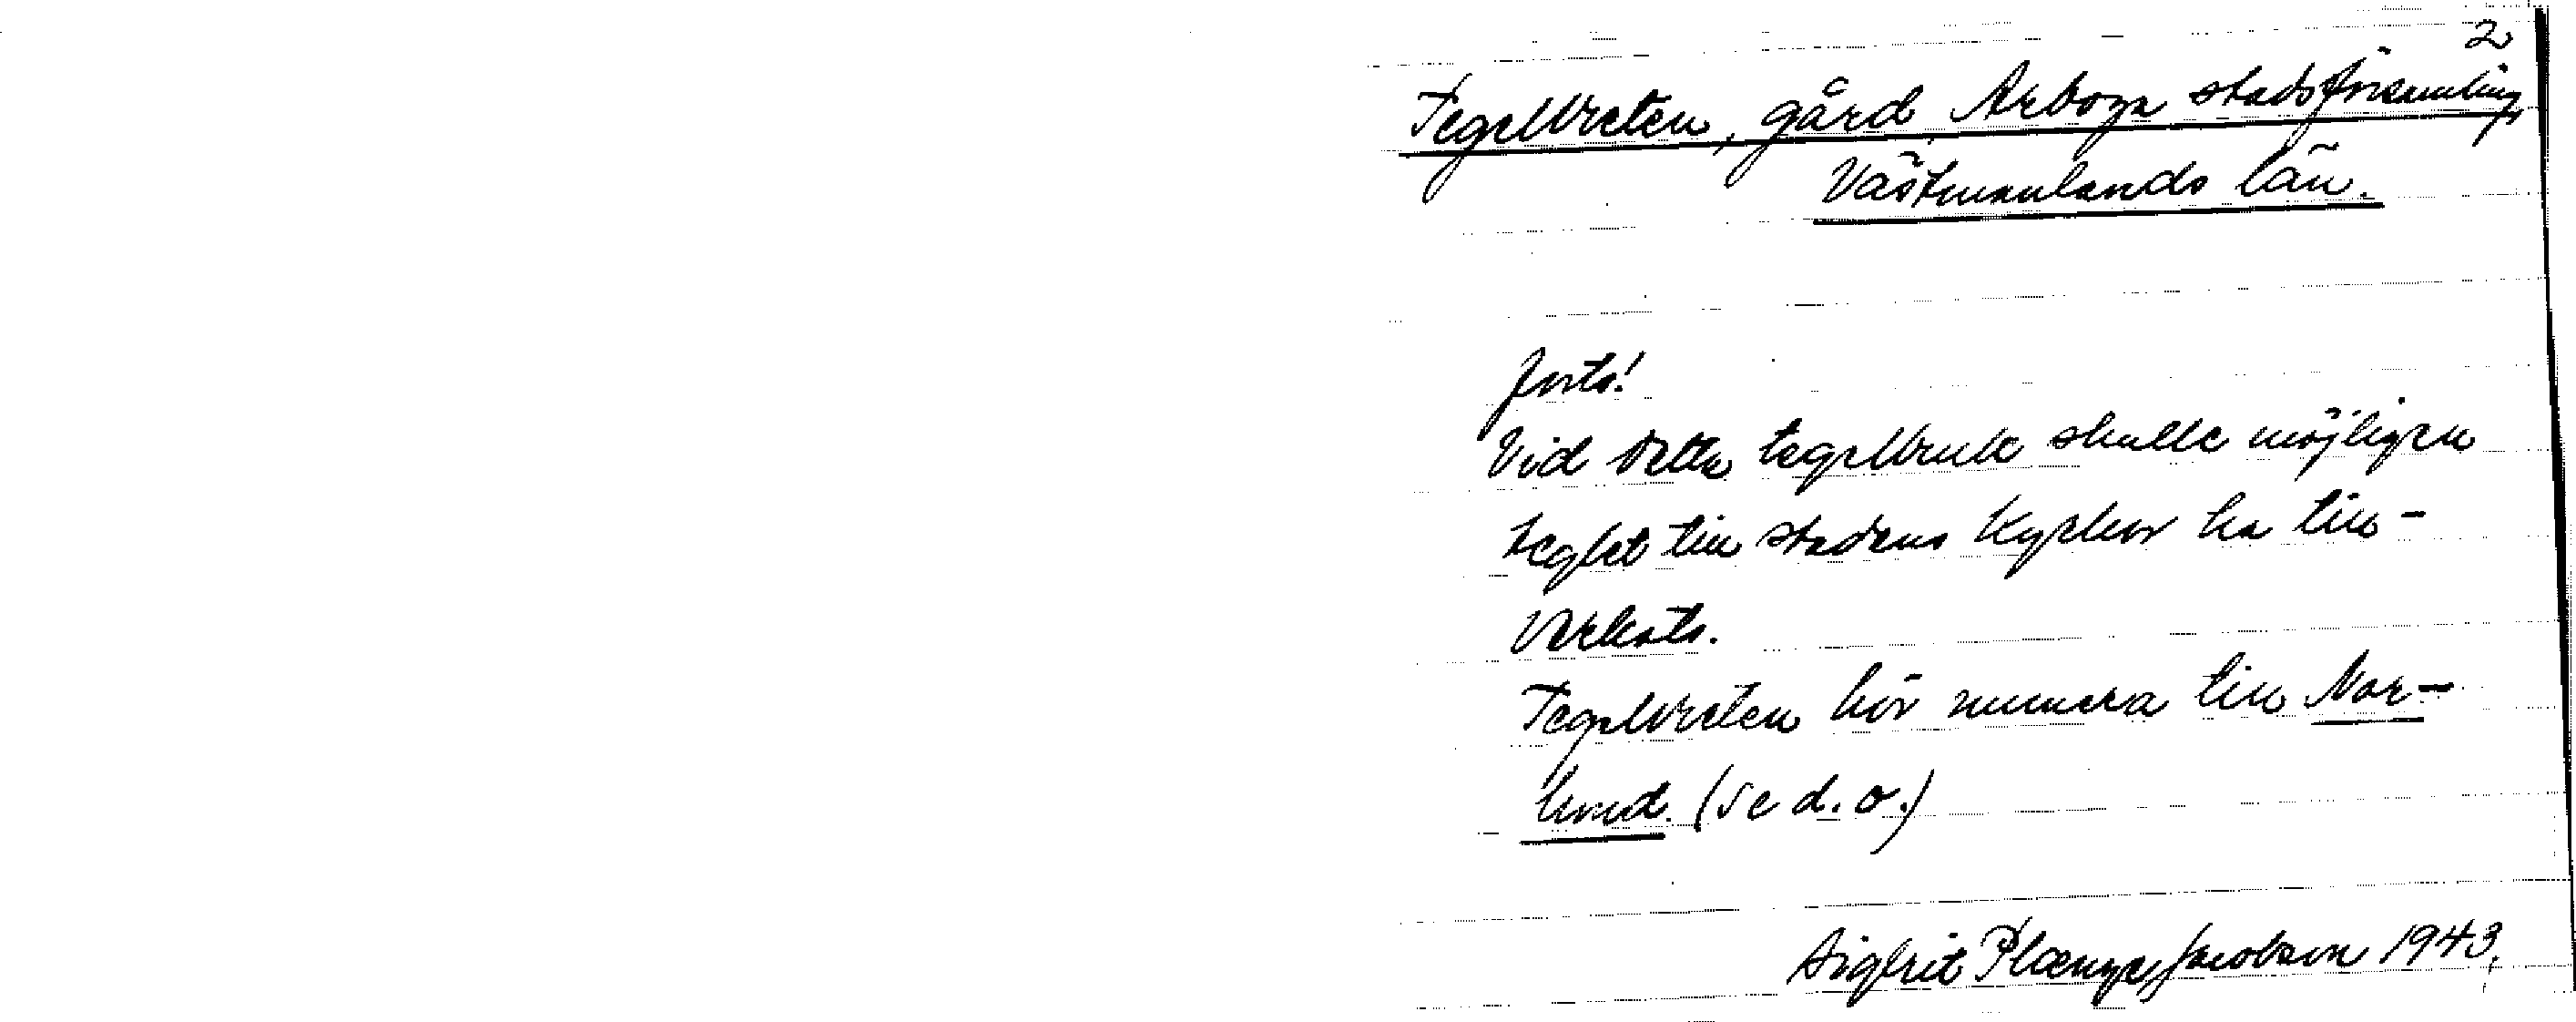 2
Tegelbreten, gård, Arboga stadsförsamling,
Västmanlands län.
forts!
Vid detta tegelbruk skulle möjligen
teglet till stadens kyrkor ha till-
verkats.
Tegelbreten hör numera till Nor-
lund. (se d. o.)
Sigbrit Plænge Jacobson 1943.